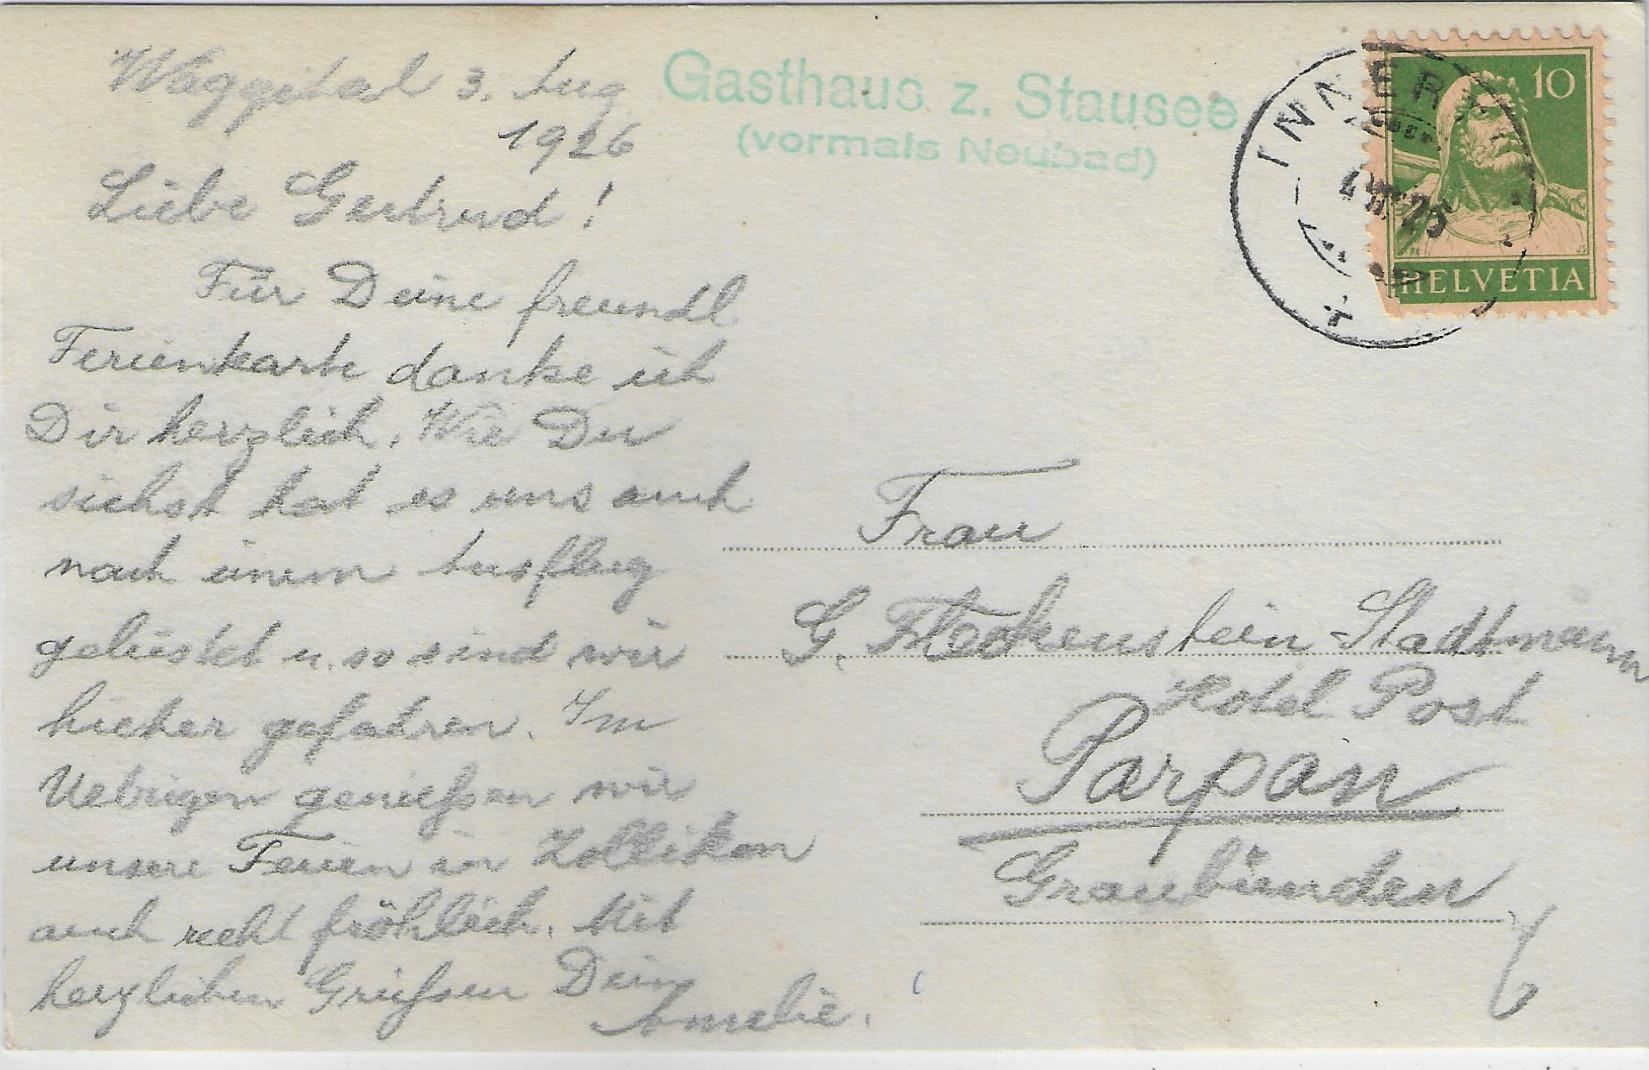 Wäggital 3. Aug
1926
Liebe Gertrud!
Für Deine freundl
Ferienkarte danke ich
Dir herzlich. Wie Du
siehst hat es uns auch
nach einem Ausflug
gelüstet u. so sind wir
hieher gefahren. Im
Uebrigen genießen wir
unsere Ferien in Zollikon
auch recht fröhlich. Mit
herzlichen Grüßen Dein
Amelie.
Gasthaus z. Stausee
(vormals Neubad)
INNER
10
HELVETIA
Frau
G. Fleckenstein-Stadtmann
Hotel Post
Parpan
Graubünden